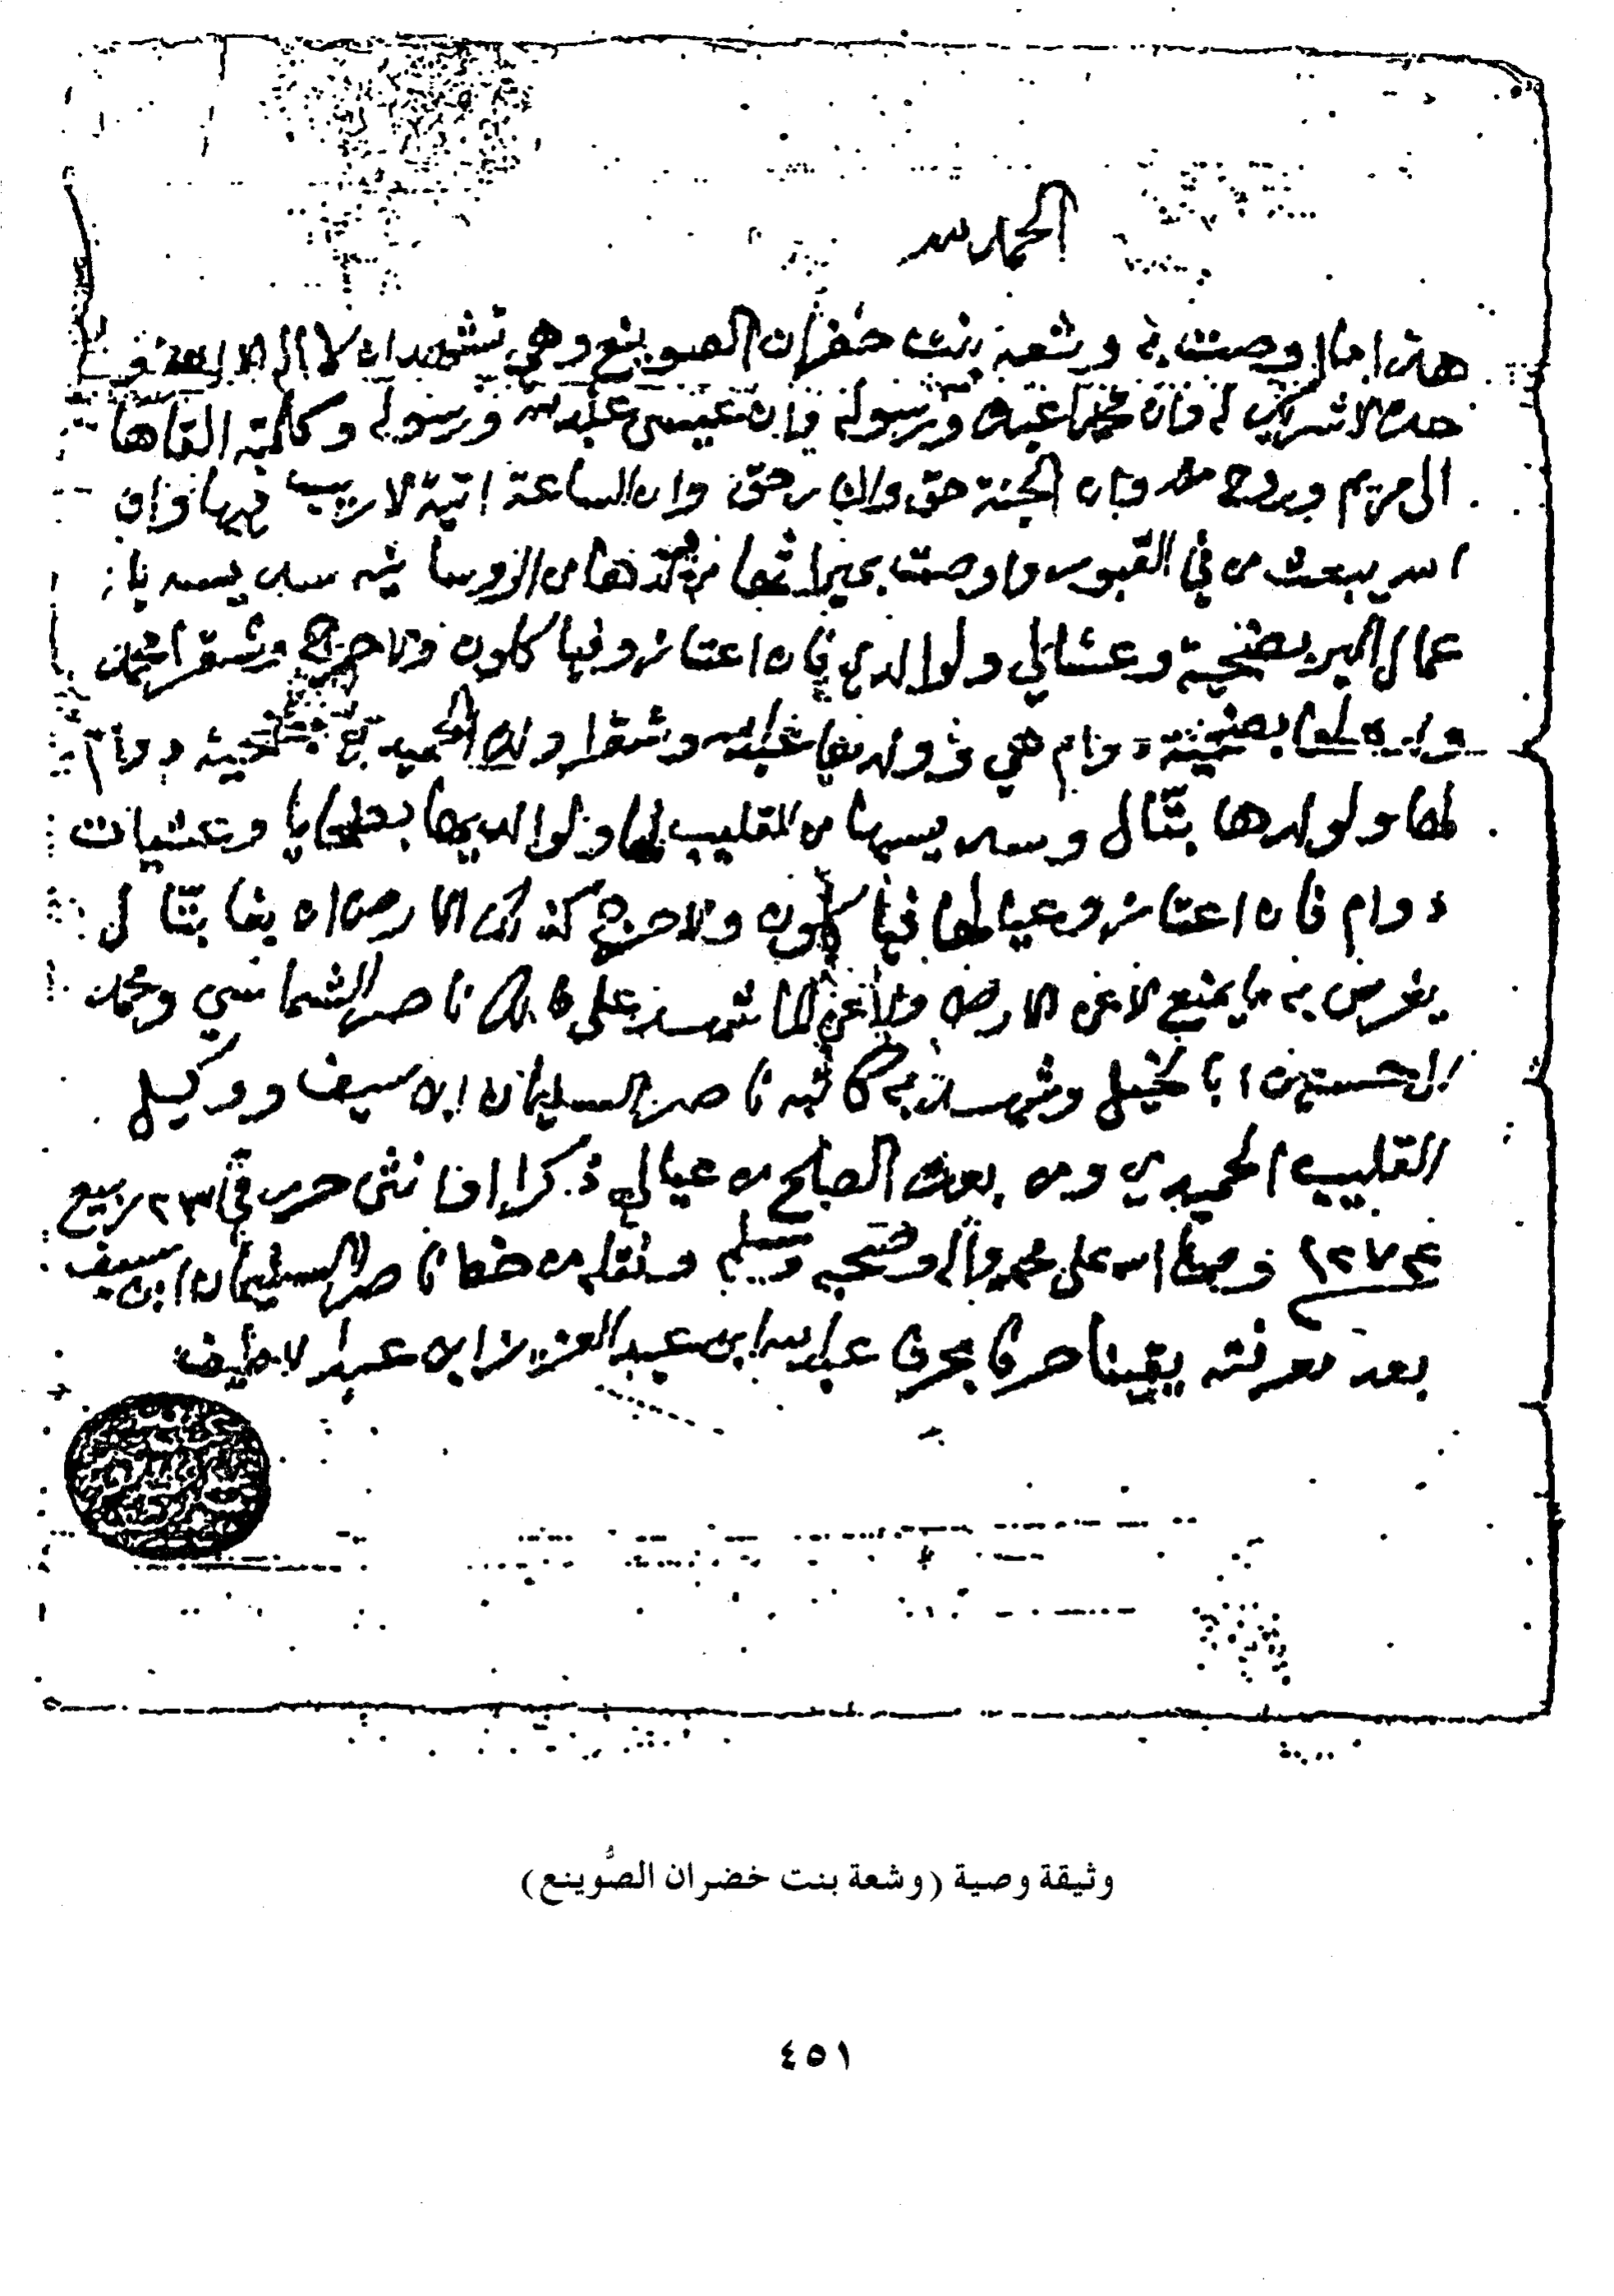 الحمد لله
هذا ما اوصت به وشعه بنت خضران الصوينع وهي تشهد ان لا اله الا الله و
حده لا شريك له وان محمدا عبده ورسوله وان عيسى عبد الله ورسوله وكلمته القاها
الى مريم وروح منه وان الجنة حق والنار حق وان الساعة اتية لا ريب فيها وان
الله يبعث من في القبور واوصت من الزوسا
عمال البر بضحية وعشا لي ولوالدي فان اعتازو فياكلون ولا حرج وشقرا
بضحية دوام هي وولدها عبد الله وشقرا دوام
لها ولولدها من القليب لها ولوالديها بضحايا وعشيات
دوام فان اعتازو عيالها فياكلون ولا حرج كذلك الارض ان
يغرس به ما يمنع لا عن الارض ولا عن الما شهد على ذالك ناصر الشماسي ومحمد
ابا الخيل وشهد به كاتبه ناصر السليمان ابن سيف ووكيل
القليب الحميدي ومن بعده الصلح من عيالي ذكر او انثى حرر في ٢٣ ربيع
١٢٧٤ وصلى الله على محمد واله وصحبه وسلم ونقله من خط ناصر السليمان ابن سيف
بعد معرفته يقينا حرفا بحرف عبد الله ابن عبد العزيز ابن عبد الاطيف
وثيقة وصية (وشعة بنت خضران الصُّوينع)
٤٥١